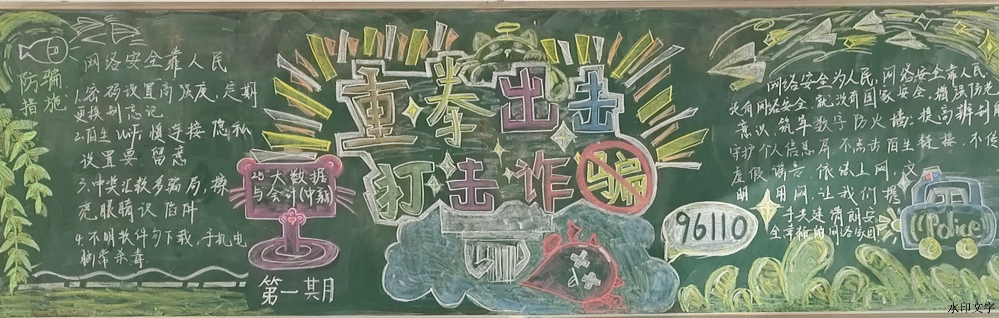 防骗
措施
网络安全靠人民
1.密码设置高强度,定期
更换别忘记
2.陌生wifi慎连接 隐私
设置要留意
3.中奖汇款多骗局,擦
亮眼睛识陷阱
4.不明软件勿下载,手机电
脑常杀毒
25大数据
与会计(中薪)
第一期
重拳出击
打击诈骗
96110
网络安全为人民,网络安全靠人民
没有网络安全就没有国家安全,增强防范
意识,筑牢数字防火墙;提高辨别
守护个人信息 不点击陌生链接,不传
虚假谣言,依法上网,文
明用网,让我们携
手共建清朗安
全幸福的网络家园
Police
水印文字